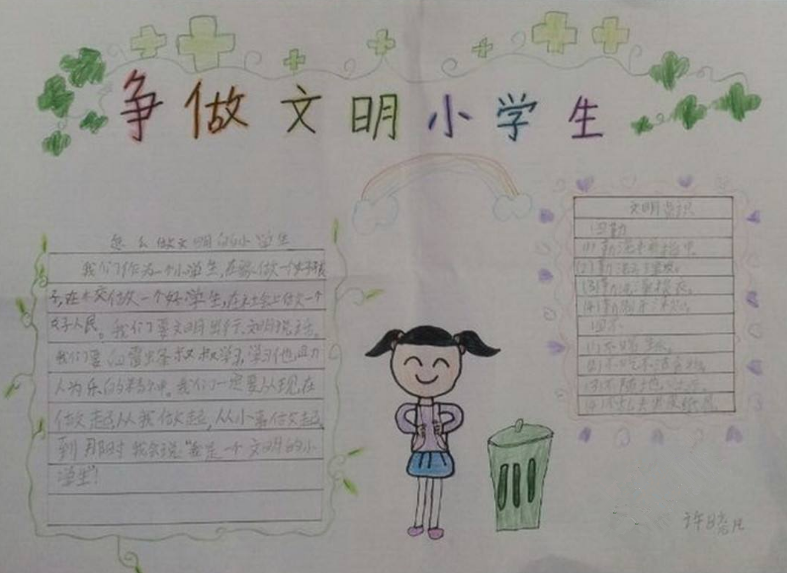 争做文明小学生
怎么做文明的小学生
我们作为一个小学生,在家做一个好孩
子,在校做一个好学生,在社会上做一个
好人民。我们要文明出行,文明说话。
我们要向雷锋叔叔学习,学习他助
人为乐的精神。我们一定要从现在
做起从我做起,从小事做起,
到那时我会说"我是一个文明的小
学生"!
文明常识
四勤
(1)勤洗手
(2)勤洗澡
(3)勤
(4)勤剪
四不
(1)不喝生水
(2)不吃不洁食物
(3)不随地
(4)不
许